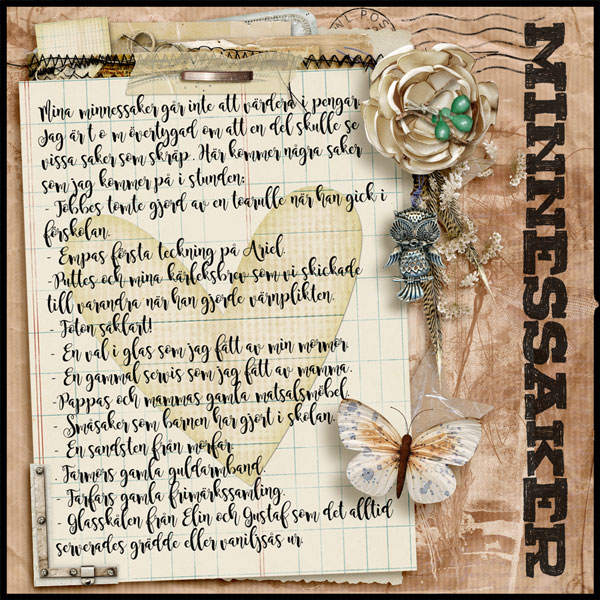 MINNESSAKER
Mina minnessaker går inte att värdera i pengar.
Jag är t o m övertygad om att en del skulle se
vissa saker som skräp. Här kommer några saker
som jag kommer på i stunden:
- Tobbes tomte gjord av en toarulle när han gick i
förskolan.
- Empas första teckning på Ariel.
- Puttes och mina kärleksbrev som vi skickade
till varandra när han gjorde värnplikten.
- Foton såklart!
- En val i glas som jag fått av min mormor.
- En gammal servis som jag fått av mamma.
- Pappas och mammas gamla matsalsmöbel.
- Småsaker som barnen har gjort i skolan.
- En sandsten från morfar.
- Farmors gamla guldarmband.
- Farfars gamla frimärkssamling.
- Glasskålen från Elin och Gustaf som det alltid
serverades grädde eller vaniljsås ur.